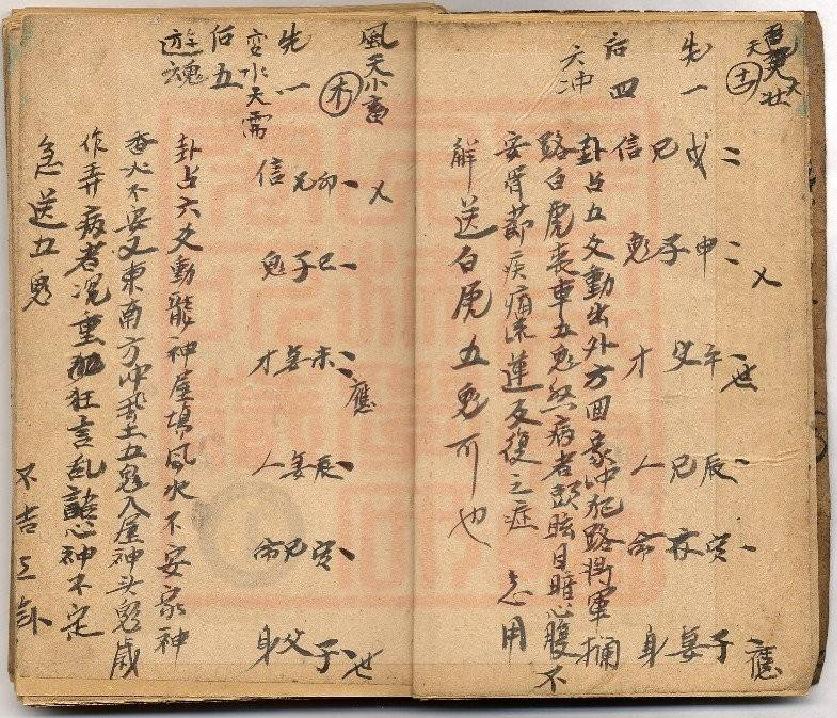 雷天大壮
土
先一
后四
六冲
乂 世 應
戌申午辰寅子
兄子父兄 妻
信鬼才人命身
卦占五爻動出外方回家冲犯路将軍
路白虎喪車五鬼煞病者頭眩目暗心腹不
安骨節疾痛流連反復之症 急用
解送白虎五鬼可也
風天小畜
木
先一
変水天需
后五
遊魂
乂 應 世
卯巳未辰寅子
兄子妻妻兄父
信鬼才人命身
卦占六爻動龍神屋填風水不安家神
香火不安又東南方冲 土五鬼入屋神头鬼歲
作弄病者沉重狂言乱語心神不定
急送五鬼
不吉之卦